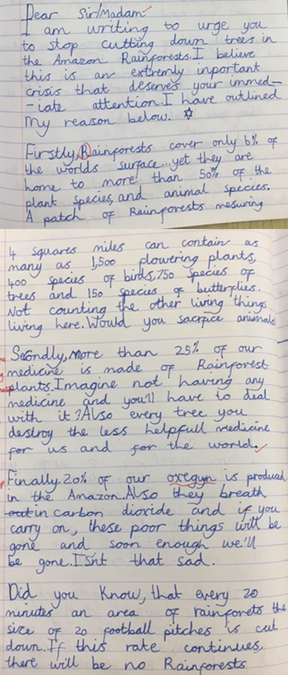 Dear Sir/Madam
I am writing to urge you
to stop cutting down trees in
the Amazon Rainforests.I believe
this is an extremly inportant
crisis that deserves your immed-
-iate attention.I have outlined
my reason below.
Firstly,Rainforests cover only 6% of
the worlds surface yet they are
home to more than 50% of the
plant species,and animal species.
A patch of Rainforests mesuring
4 squares miles can contain as
many as 1,500 flowering plants,
400 species of birds,750 species of
trees and 150 species of butterflies.
Not counting the other living things
living here.Would you sacrfice animals
Secondly,more than 25% of our
medicine is made of Rainforest
plants.Imagine not having any
medicine and you'll have to deal
with it?Also every tree you
destroy the less helpfull medicine
for us and for the world.
Finally,20% of our oxegyn is produced
in the Amazon.Also they breath
out in carbon dioxide and if you
carry on, these poor things will be
gone and soon enough we'll
be gone.Isnt that sad.
Did you know,that every 20
minutes an area of rainforets the
size of 20 football pitches is cut
down.If this rate continues,
there will be no Rainforests